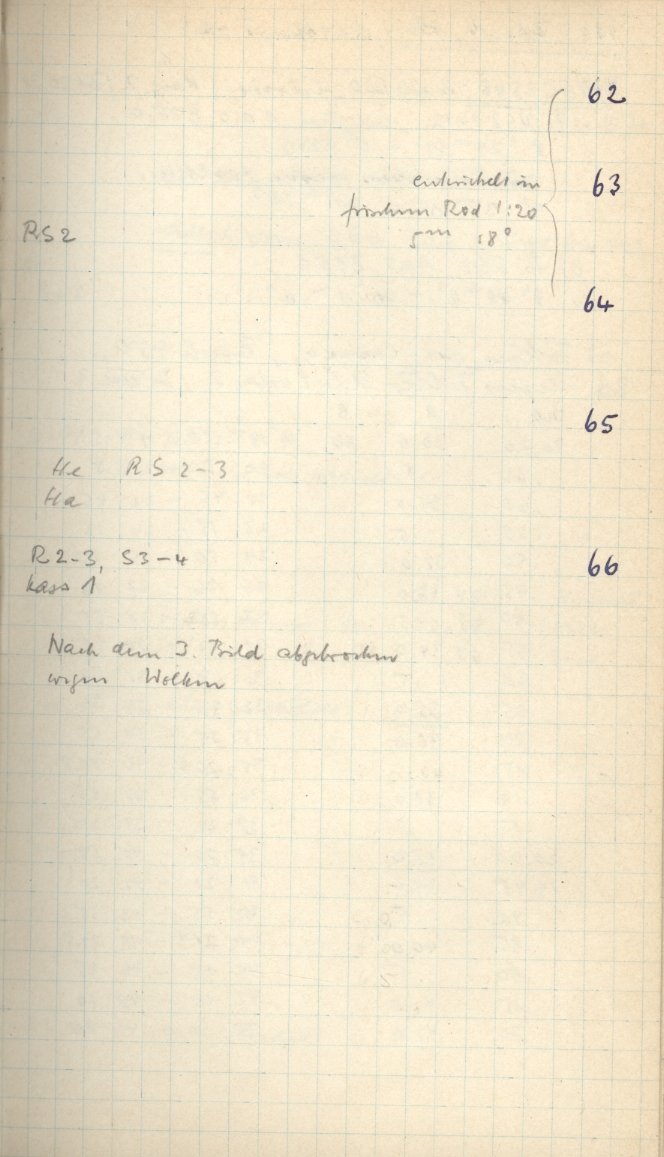 62
entwickelt in
63
frischem Rod 1:20
RS2
5m 18°
64
65
He RS 2-3
Ha
R2-3, S3-4
66
kass 1
Nach dem 3. Bild abgebrochen
wegen Wolken